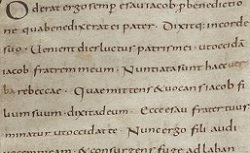 Oderat ergo semp esau iacob, p benedictio
ne qua benedixerat ei pater. Dixitq; incorde
suo; Uenient dies luctus patris mei, ut occida
iacob fratrem meum; Nuntiata sunt haec
ba rebeccae; Quae mittens & uocans iacob fi
lium suum, dixit ad eum; Ecce esau frater tuus
minatur utoccidat te. Nunc ergo fili audi
&consurgens fuge ad laban